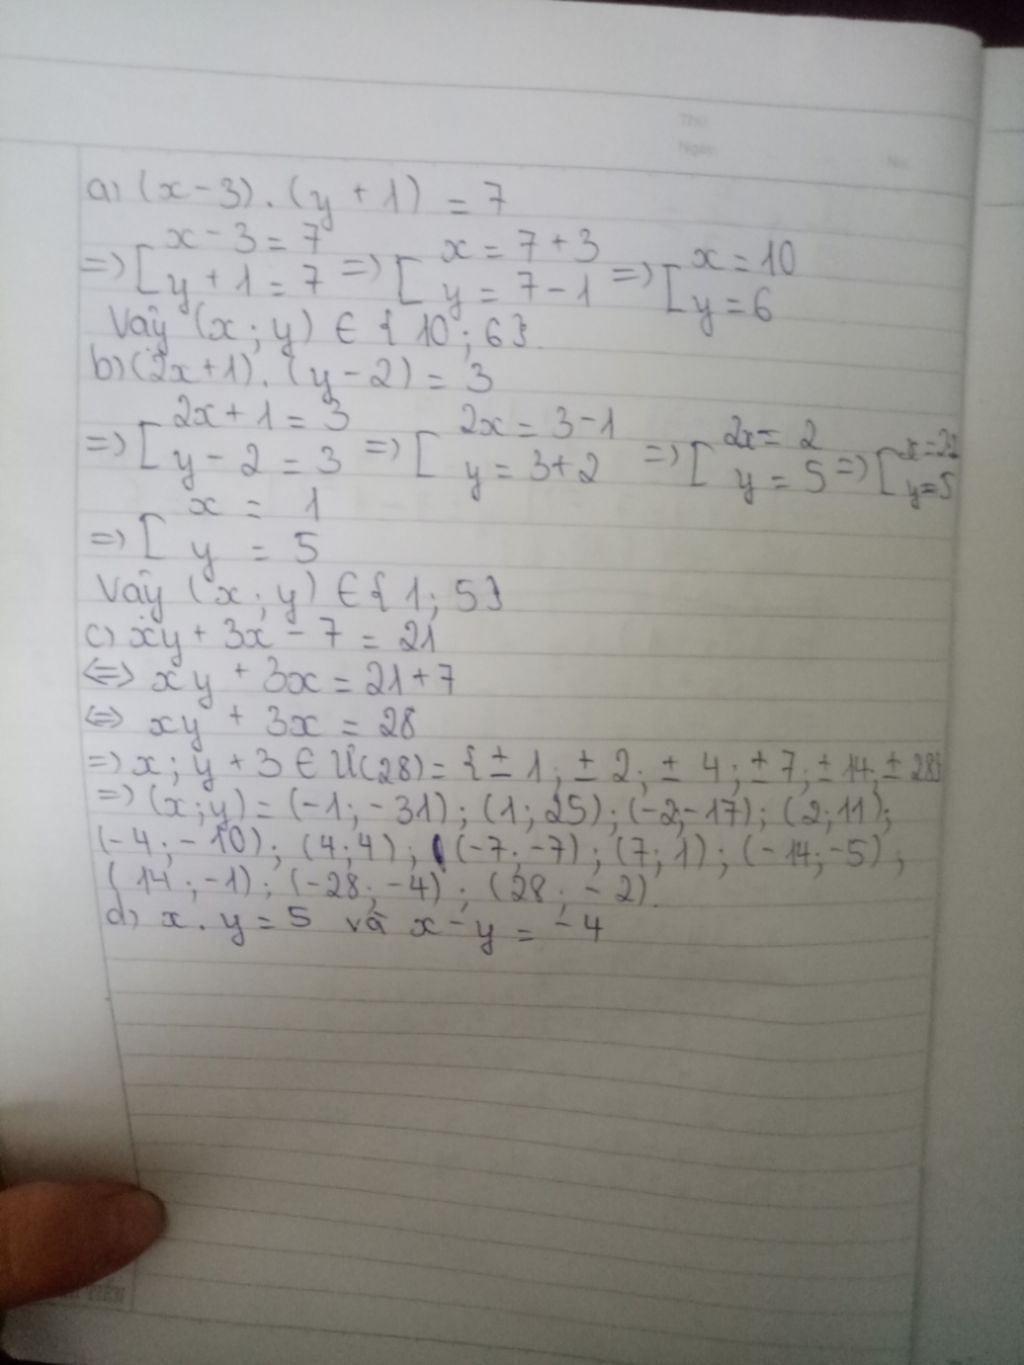 Thứ
Ngày
No.
a) (x - 3) . (y + 1) = 7
=> [ x - 3 = 7 y + 1 = 7 => [ x = 7 + 3 y = 7 - 1 => [ x = 10 y = 6
Vậy (x ; y) ∈ { 10 ; 6 }.
b) (2x + 1) . (y - 2) = 3
=> [ 2x + 1 = 3 y - 2 = 3 => [ 2x = 3 - 1 y = 3 + 2 => [ 2x = 2 y = 5 => [ y = 5
=> [ x = 1 y = 5
Vậy (x ; y) ∈ { 1 ; 5 }
c) xy + 3x - 7 = 21
<=> xy + 3x = 21 + 7
<=> xy + 3x = 28
=> x ; y + 3 ∈ Ư(28) = { ± 1 ; ± 2 ; ± 4 ; ± 7 ; ± 14 ; ± 28 }
=> (x ; y) = (-1 ; -31) ; (1 ; 25) ; (-2 ; -17) ; (2 ; 11) ;
(-4 ; -10) ; (4 ; 4) ; (-7 ; -7) ; (7 ; 1) ; (-14 ; -5) ;
(14 ; -1) ; (-28 ; -4) ; (28 ; -2).
d) x . y = 5 và x - y = -4